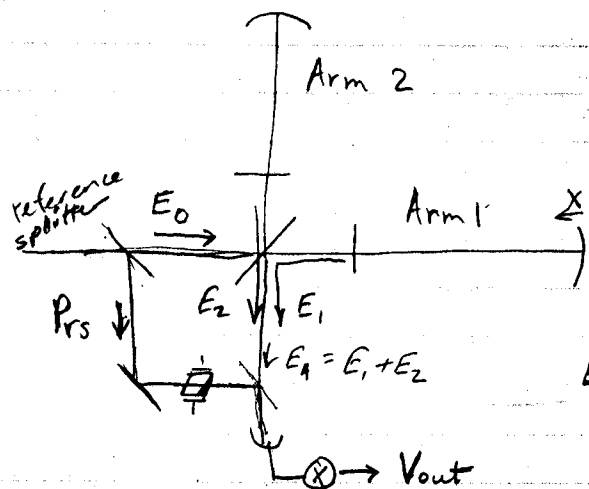 Arm 2
reference
splitter
E₀
Arm 1
x
P_rs
E₂
E₁
E_A = E₁ + E₂
Vout